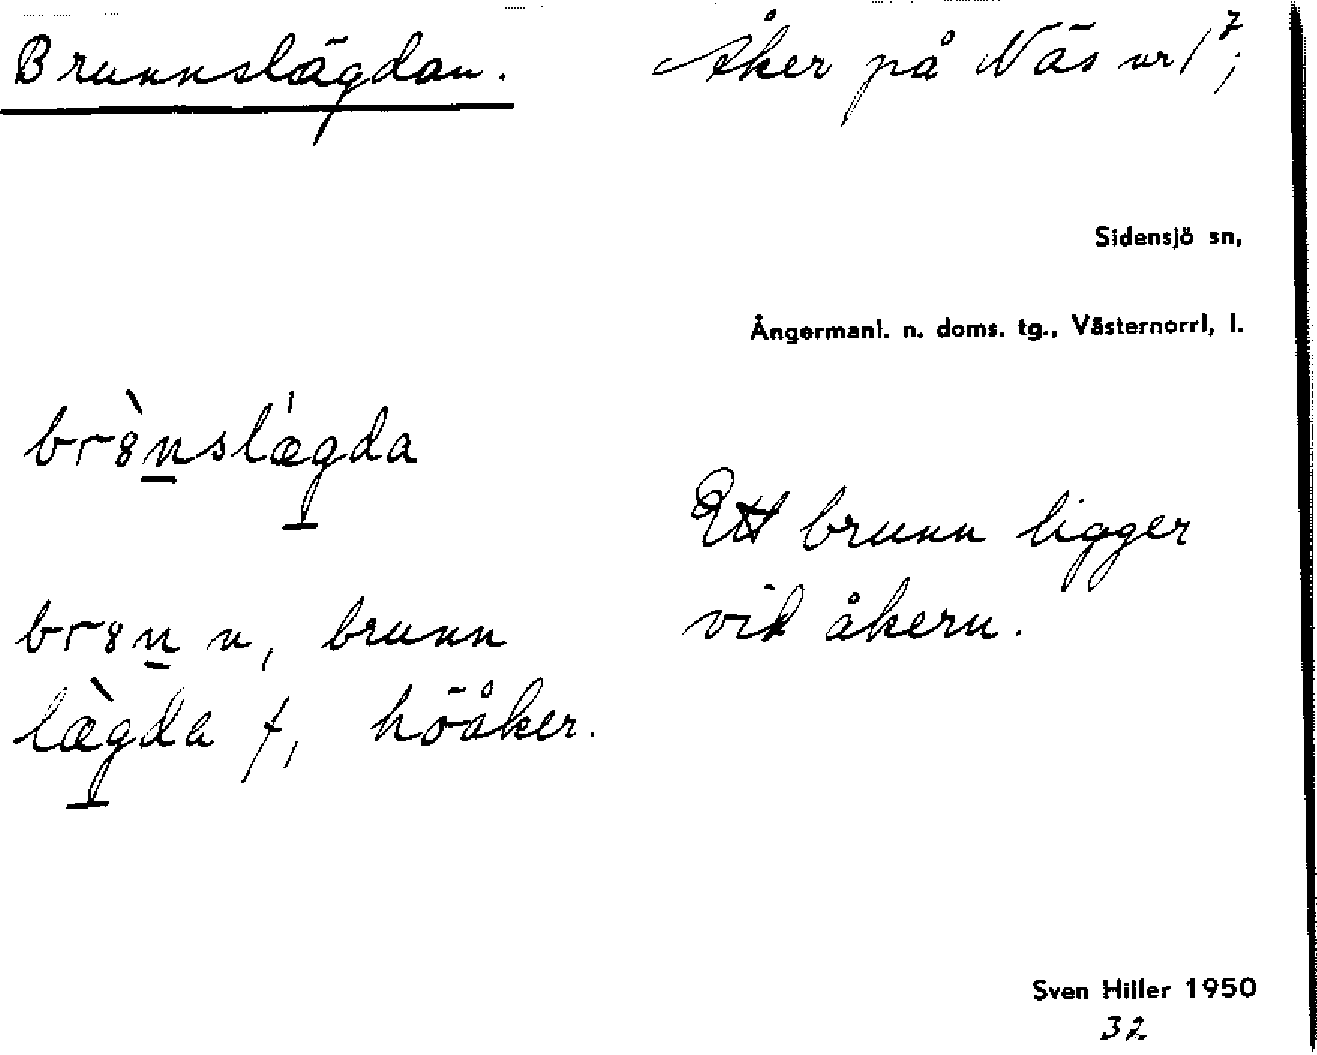 Brunnslägdan. Åker på Näs nr 1⁷;
Sidensjö sn,
Ångermanl. n. doms. tg., Västernorrl, l.
br8̀nslæ̍gda
Ett brunn ligger
vid åkern.
br8n n, brunn
læ̀gda f, höåker.
Sven Hiller 1950
32